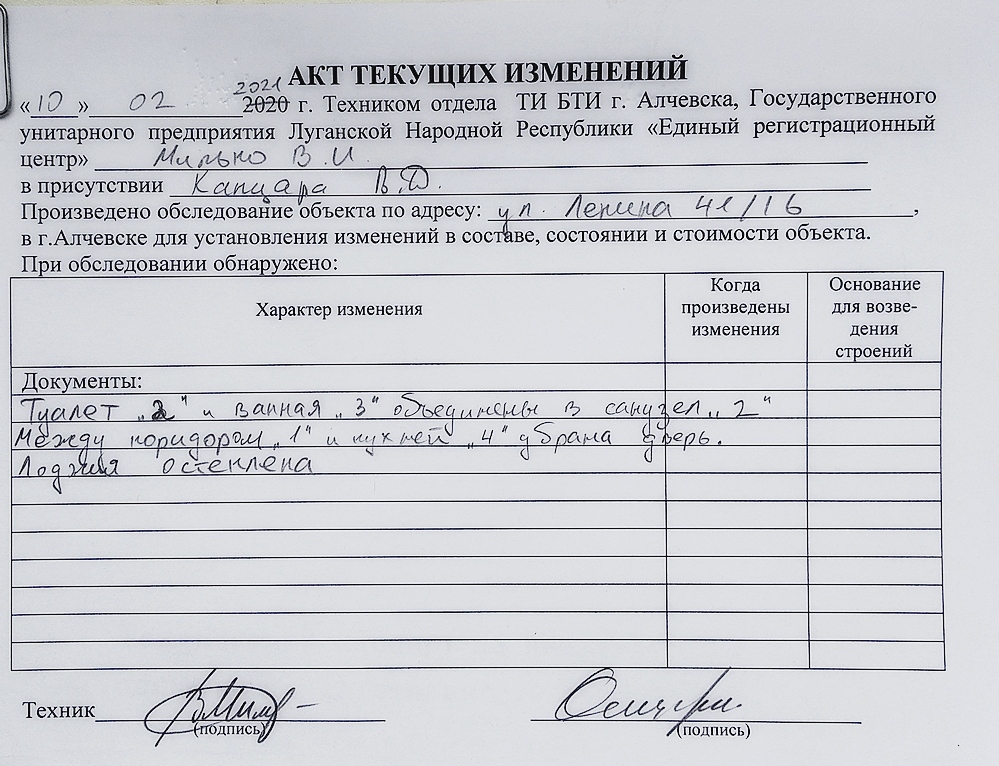 АКТ ТЕКУЩИХ ИЗМЕНЕНИЙ
2021
«10» 02 2020 г. Техником отдела ТИ БТИ г. Алчевска, Государственного
унитарного предприятия Луганской Народной Республики «Единый регистрационный
центр» Милько В.И.
в присутствии Капцара В.Д.
Произведено обследование объекта по адресу: ул. Ленина 41/16,
в г.Алчевске для установления изменений в составе, состоянии и стоимости объекта.
При обследовании обнаружено:
Характер изменения
Когда
произведены
изменения
Основание
для возве-
дения
строений
Документы:
Туалет „2" и ванная „3" объединены в санузел „2"
Между коридором „1" и кухней „4" убрана дверь.
Лоджия остеклена
Техник
(подпись) (подпись)